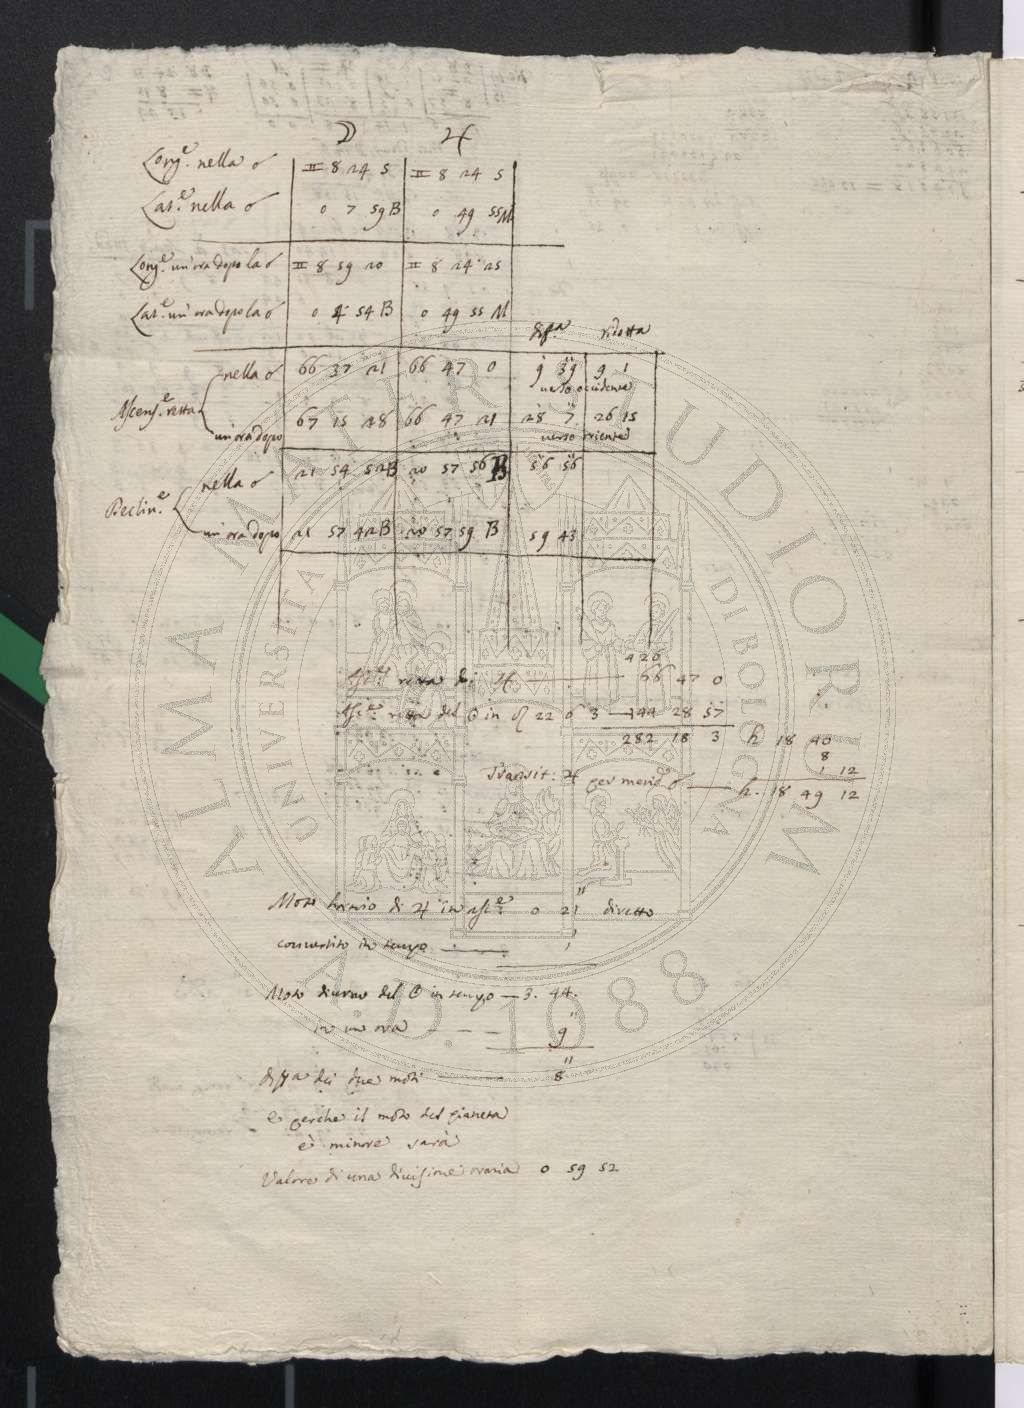 ☽ ♃
Long.e nella ☌ ♊ 8 24 5 ♊ 8 24 5
Lat.e nella ☌ 0 7 59 B 0 49 55 M
Long.e un'ora dopo la ☌ ♊ 8 59 20 ♊ 8 24 25
Lat.e un'ora dopo la ☌ 0 4 54 B 0 49 55 M
diff.a ridotta
Ascens.e retta nella ☌ 66 37 21 66 47 0 9' 39'' 9 1
verso occidente
un'ora dopo 67 15 28 66 47 21 28' 7'' 26 15
verso oriente
Declin.e nella ☌ 21 54 52 B 20 57 56 B 56' 56''
un'ora dopo 21 57 42 B 20 57 59 B 59 43
426
Asc.e retta di ♃ — 66 47 0
Asc.e retta del ☉ in ♌ 22 6 3 — 144 28 57
282 18 3 h 18 40
8
1 12
Transit: ♃ per merid.o ☌ — h. 18 49 12
Moto horario di ♃ in asc.e 0 21'' diretto
convertito in tempo — 1''
Moto diurno del ☉ in tempo — 3. 44.
in un ora — — — 9''
diff.a dei due moti — 8''
e perche il moto del pianeta
è minore sarà
Valore di una divisione oraria 0 59 52
ALMA MATER STUDIORUM
UNIVERSITÀ DI BOLOGNA
A.D. 1088